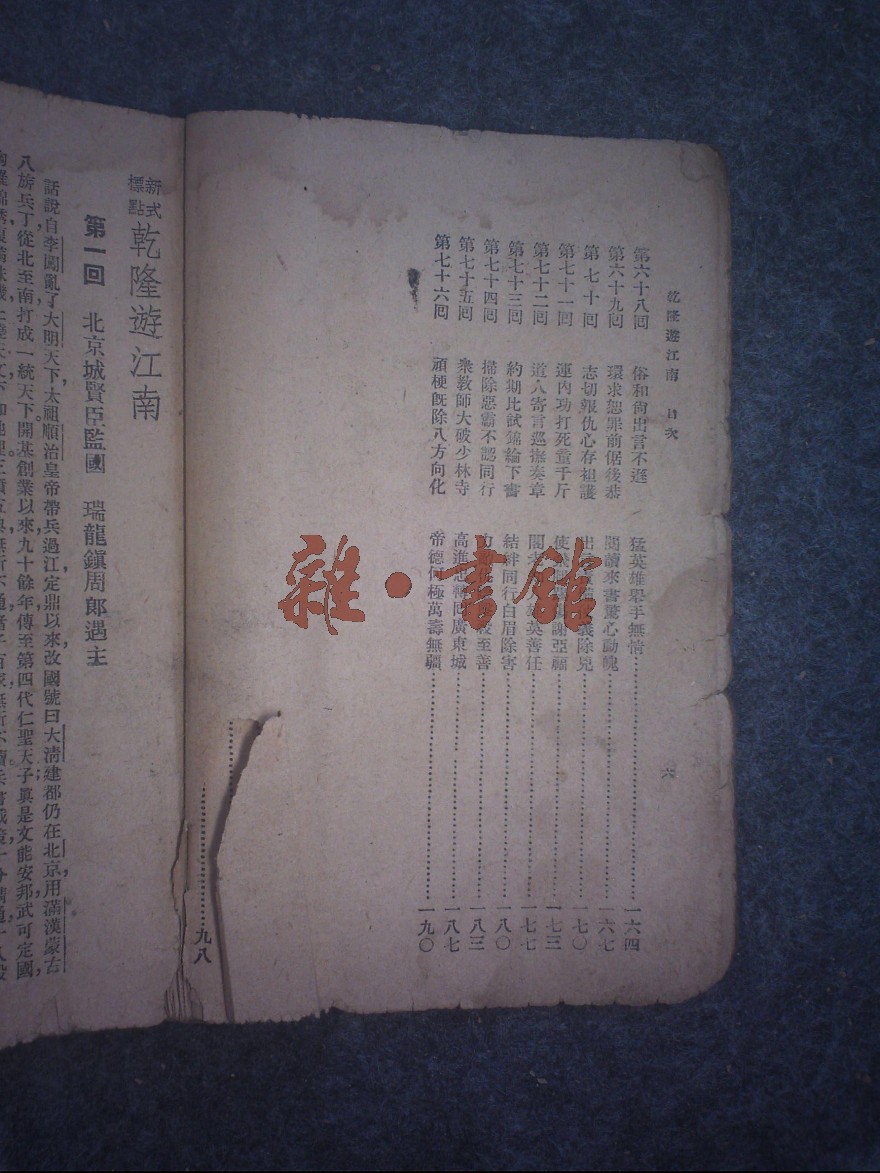 乾隆遊江南　目次
第六十八囘　俗和尚出言不遜　猛英雄舉手無情…………一六四
第六十九囘　環求恕罪前倨後恭　閱讀來書驚心動魄…………一六七
第七十囘　志切報仇心存袒護　出　除兇…………一七〇
第七十一囘　運內功打死童千斤　使　謝亞福…………一七三
第七十二囘　道人寄言巡撫奏章　閣老　英善任…………一七七
第七十三囘　約期比試錦綸下書　結絆同行白眉除害…………一八〇
第七十四囘　掃除惡霸不認同行　至善…………一八三
第七十五囘　衆教師大破少林寺　高進忠轉回廣東城…………一八七
第七十六囘　頑梗旣除八方向化　帝德何極萬壽無疆…………一九〇
六
…………九八
雜・書館
新式標點　乾隆遊江南
第一回　北京城賢臣監國　瑞龍鎭周郞遇主
話說自李闖亂了大明天下，太祖順治皇帝帶兵過江定鼎以來，改國號曰大淸，建都仍在北京，用滿漢蒙古
八旂兵丁，從北至南，打成一統天下。開基創業以來，九十餘年，傳至第四代仁聖天子，眞是文能安邦，武可定國，